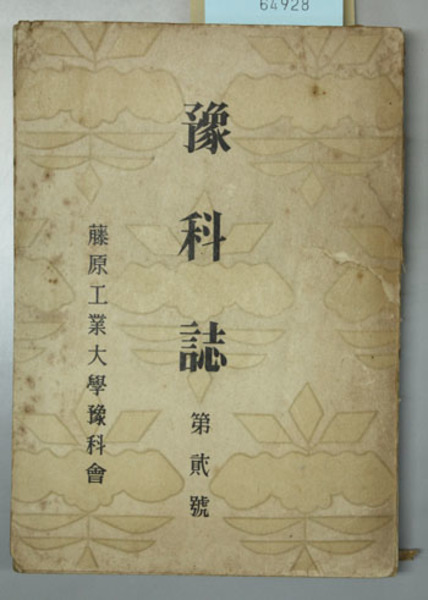 64928
豫科誌
第貳號
藤原工業大學豫科會